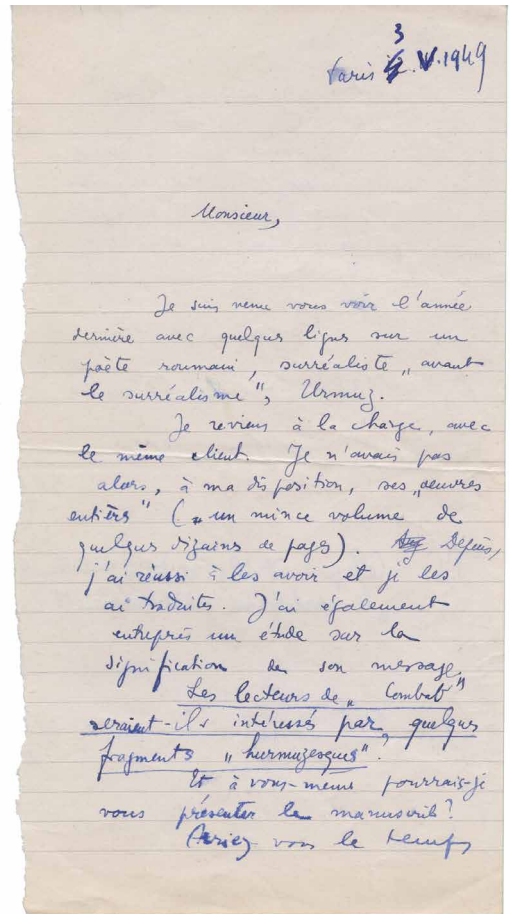 Paris 3 V.1949
Monsieur,
Je suis venu vous voir l'année
dernière avec quelques lignes sur un
poète roumain, surréaliste „avant
le surréalisme", Urmuz.
Je reviens à la charge, avec
le même client. Je n'avais pas
alors, à ma disposition, ses „oeuvres
entièrs" („un mince volume de
quelques dizains de pages). Depuis,
j'ai réussi à les avoir et je les
ai traduites. J'ai également
entrepris un étude sur la
signification de son message.
Les lecteurs de „Combat"
seraient-ils intéressés par quelques
fragments „hurmuzesques"?
Et à vous-même pourrais-je
vous présenter le manuscrit?
vous le temps